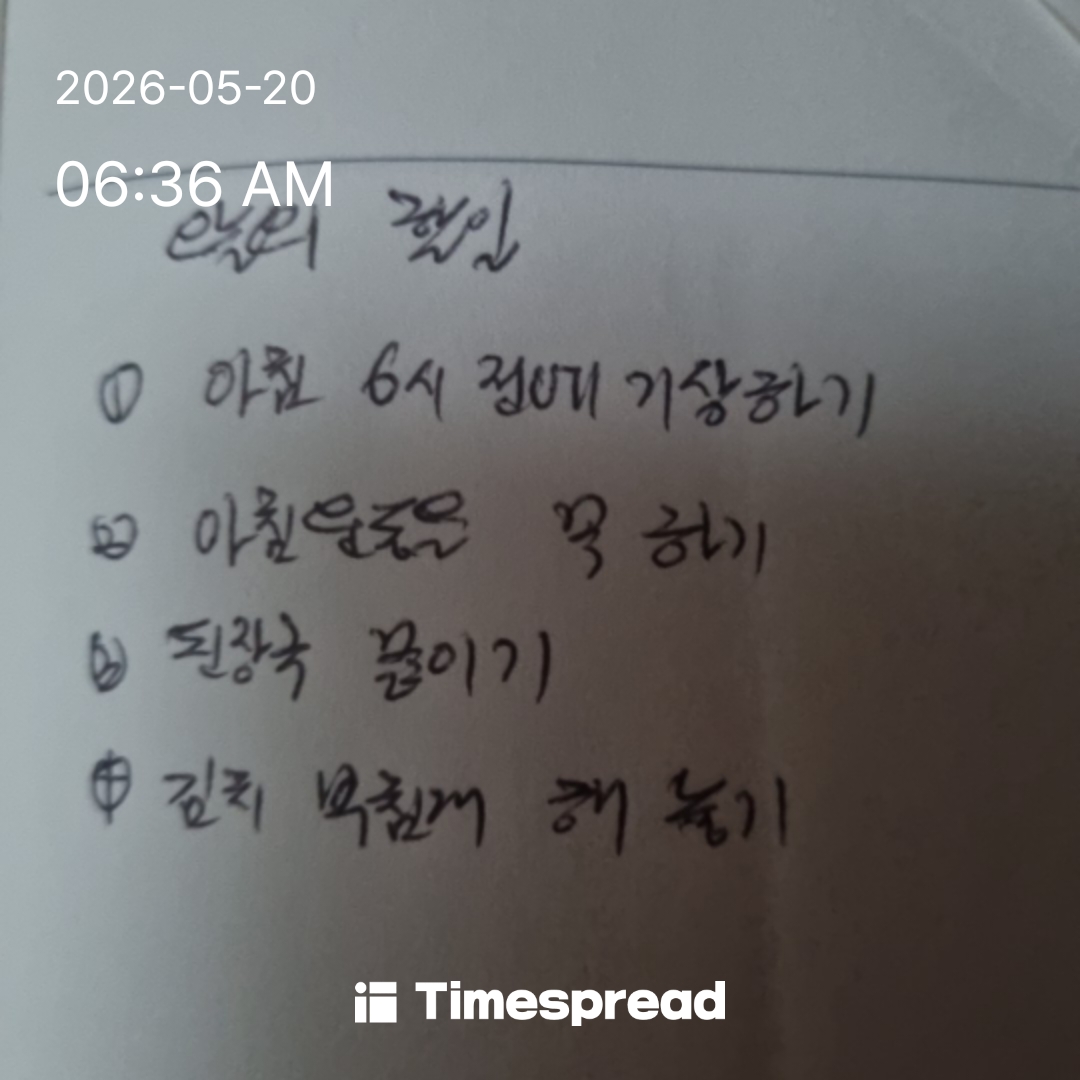 2026-05-20
06:36 AM
오늘의 할일
① 아침 6시 전에 기상하기
② 아침운동을 꼭 하기
③ 된장국 끓이기
④ 김치 부침개 해 놓기
Timespread